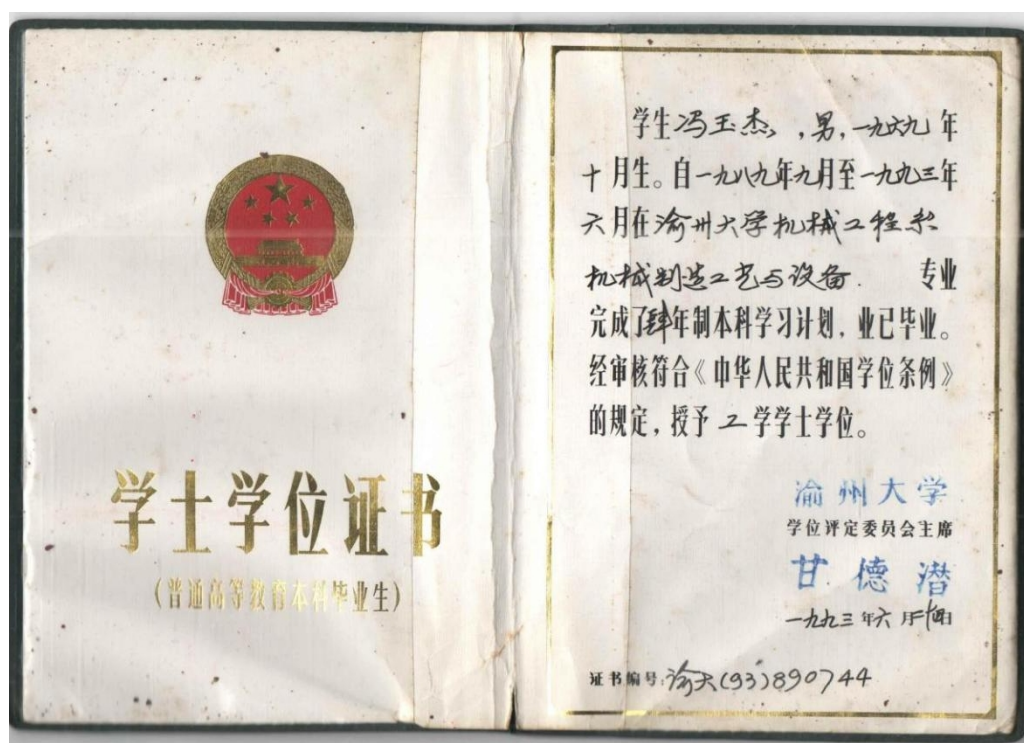 学士学位证书
（普通高等教育本科毕业生）
学生冯玉杰，男，一九六九年
十月生。自一九八九年九月至一九九三年
六月在渝州大学机械工程系
机械制造工艺与设备. 专业
完成了肆年制本科学习计划，业已毕业。
经审核符合《中华人民共和国学位条例》
的规定，授予工学学士学位。
渝州大学
学位评定委员会主席
甘德潜
一九九三年六月
证书编号：渝大(93)890744